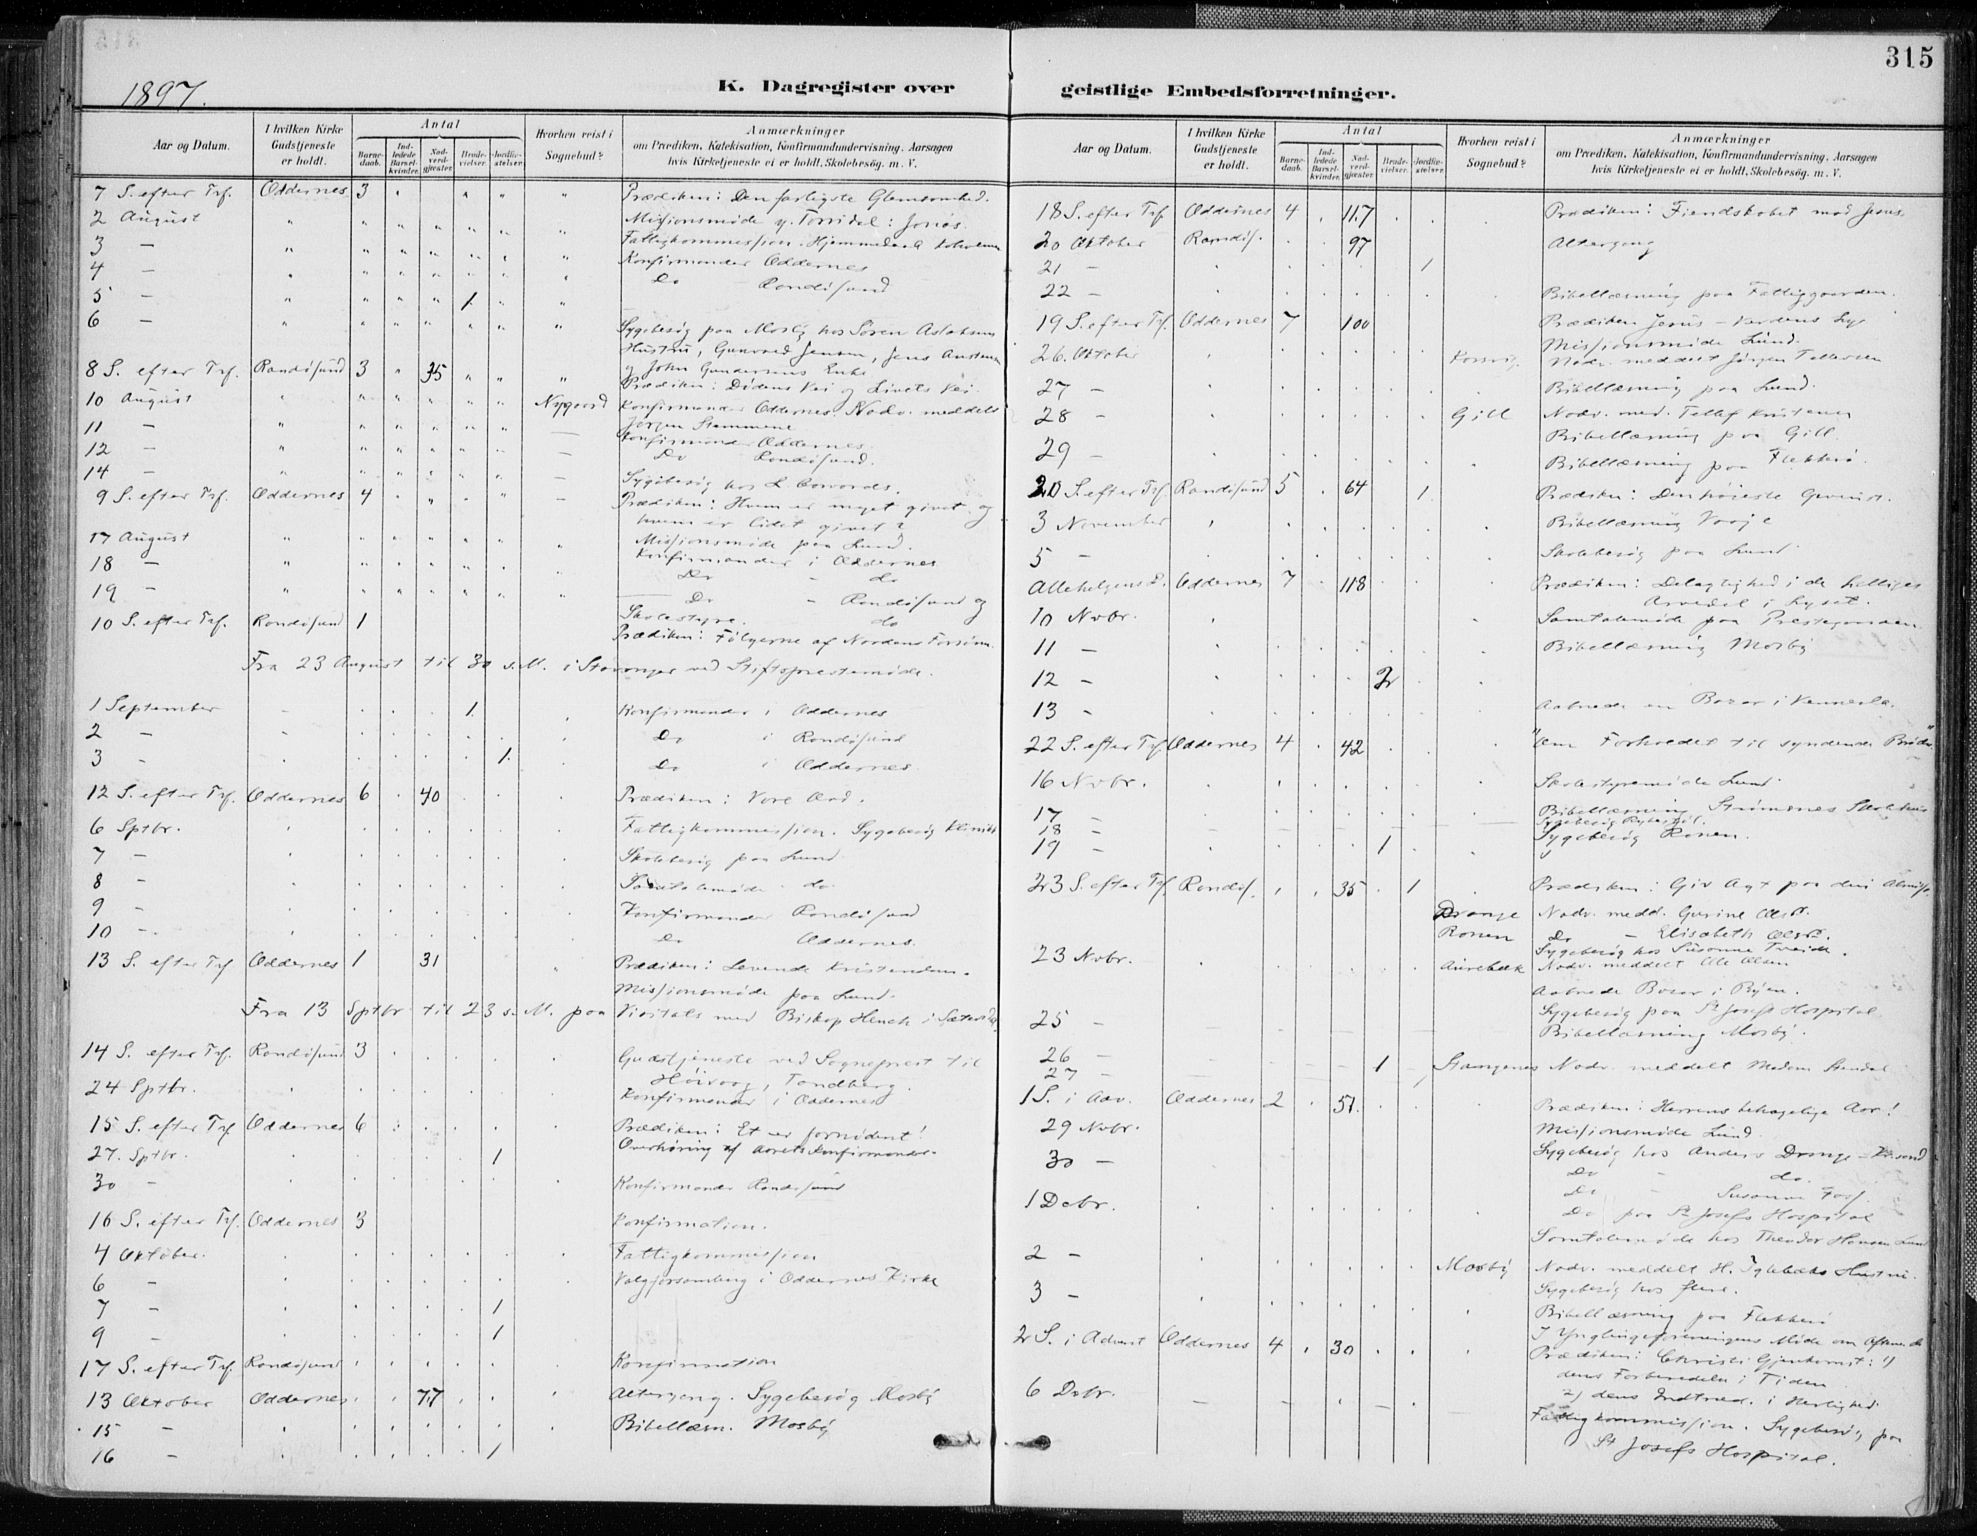 315
1897.
K. Dagregister over geistlige Embedsforretninger.
Aar og Datum. I hvilken Kirke Gudstjeneste er holdt. Antal Barnedaab. Indledede Barselkvinder. Nadverdgjester. Brudevielser. Jordfæstelser. Hvorhen reist i Sognebud? Anmærkninger om Prædiken, Katekisation, Konfirmandundervisning, Aarsagen hvis Kirketjeneste ei er holdt, Skolebesøg. m. V.
7 S. efter Trf. Oddernes 3 Prædiken: Den farligste Glemsomhed.
2 August Missionsmøde y. Torridal: Jonas.
3 — Fattigkommission. Hjemmedaab
4 — Konfirmander Oddernes
5 — 1 Do Randøsund
6 — Sygebesøg paa Mosby hos Søren Aslaksens
Hustru, Gunvald Jensen, Jens
og John Gundersens Enke
8 S. efter Trf. Randøsund 3 35 Prædiken: Dødens Vei og Livets Vei.
10 August Nygaard Konfirmander Oddernes. Nadv. meddelt
Jørgen Stemmene
11 — Konfirmander Oddernes.
12 — Do Randøsund.
14 — Sygebesøg hos
9 S. efter Trf. Oddernes 4 Prædiken: Hvem er meget givet og
hvem er lidet givet?
17 August Missionsmøde paa Lund.
18 — Konfirmander i Oddernes
19 — Do - do
Do - Randøsund og
Skolestyre. do
10 S. efter Trf. Randøsund 1 Prædiken: Følgerne af Naadens Forsøm.
Fra 23 August til 30 s. M. i Stavanger ved Stiftsprestemøde.
1 September 1 Konfirmander i Oddernes
2 — Do i Randøsund
3 — 1 Do i Oddernes
12 S. efter Trf. Oddernes 6 40 Prædiken: Vore Ord.
6 Sptbr. Fattigkommission. Sygebesøg
7 — Skolebesøg paa Lund
8 — Samtalemøde do
9 — Konfirmander Randøsund
10 — Do Oddernes.
13 S. efter Trf Oddernes 1 31 Prædiken: Levende Kristendom.
Missionsmøde paa Lund.
Fra 13 Sptbr til 23 s. M. paa Visitats med Biskop Heuch i
14 S. efter Trf. Randøsund 3 Gudstjeneste ved Sogneprest til
Høivaag, Tandberg.
24 Sptbr. Konfirmander i Oddernes
15 S. efter Trf Oddernes 6 Prædiken: Et er fornødent!
27. Sptbr. 1 Overhøring af Aarets Konfirmander.
30 — Konfirmander Randøsund
16 S. efter Trf. Oddernes 3 Konfirmation.
4 Oktober. Fattigkommission
6 — Valgforsamling i Oddernes Kirke
7 — 1
9 — 1
17 S. efter Trf. Randøsund Konfirmation
13 Oktober Oddernes 77 Altergang. Sygebesøg Mosby
15 — Bibellæsn. Mosby
16 — 1
Aar og Datum. I hvilken Kirke Gudstjeneste er holdt. Antal Barnedaab. Indledede Barselkvinder. Nadverdgjester. Brudevielser. Jordfæstelser. Hvorhen reist i Sognebud? Anmærkninger om Prædiken, Katekisation, Konfirmandundervisning, Aarsagen hvis Kirketjeneste ei er holdt, Skolebesøg. m. V.
18 S. efter Trf. Oddernes 4 117 Prædiken: Fiendskabet mod Jesus
20 Oktober Randøs. 97 Altergang
21 — 1
22 — Bibellæsning paa Fattiggaarden.
19 S. efter Trf. Oddernes 7 100 Prædiken Jesus - Verdens Lys
Missionsmøde Lund.
26. Oktober Nadv. meddelt Jørgen Tellefsen
27 — Bibellæsning paa Lund.
28 — Gill Nadv. med. Tellef
Bibellæsning paa Gill.
29 — Bibellæsning paa Flekkerø.
20 S. efter Trf. Randøsund 5 64 1 Prædiken: Den høieste Gevinst.
3 November Bibellæsning
5 — Skolebesøg paa Lund
Allehelgensd. Oddernes 7 118 Prædiken: Delagtighed i de helliges
Arvedel i Lyset.
10 Nvbr. Samtalemøde paa Prestegaarden
11 — Bibellæsning Mosby
12 — 2
13 — Aabnede en Bazar i Vennesla.
22 S. efter Trf Oddernes 4 42 "Om Forholdet til syndende Brødre"
16 Nvbr. Skolestyremøde Lund
17 — Bibellæsning Strømsnes Skolehus
18 — Sygebesøg
19 — 1 Sygebesøg Ronen.
23 S. efter Trf. Randøs. 35 1 Prædiken: Giv Agt paa din
Drange Nadv. medd. Gurine Olsd.
Ronen Do — Elisabeth Olsd.
23 Nvbr. Sygebesøg hos Susanne Tveide.
Aurebæk Nadv. meddelt Ole Olsen
Aabnede Bazar i Ryen.
25 — Sygebesøg paa St Josefs Hospital
Bibellæsning Mosby.
26 —
27 — 1 Stangenes Nadv. meddelt Madam
1 S. i Adv. Oddernes 2 51. Prædiken: Herrens behagelige Aar!
29 Nvbr. Missionsmøde Lund.
30 — Sygebesøg hos Anders Drange - Kr.sand
Do do.
Do - Susanne
1 Dcbr. Do paa St Josefs Hospital
Samtalemøde hos Theodor Hansen Lund
2 — Mosby Nadv. meddelt H. Hustru.
3 — Sygebesøg hos flere.
Bibellæsning paa Flekkerø
I Ynglingeforeningens Møde om
2 S. i Advent Oddernes 4 30 Prædiken: Christi Gjenkomst: 1)
dens Forberedelse i Tiden
6 Dcbr. 2) dens Indtræd. i Herlighed
Fattigkommission. Sygebesøg paa
St Josefs Hospital.